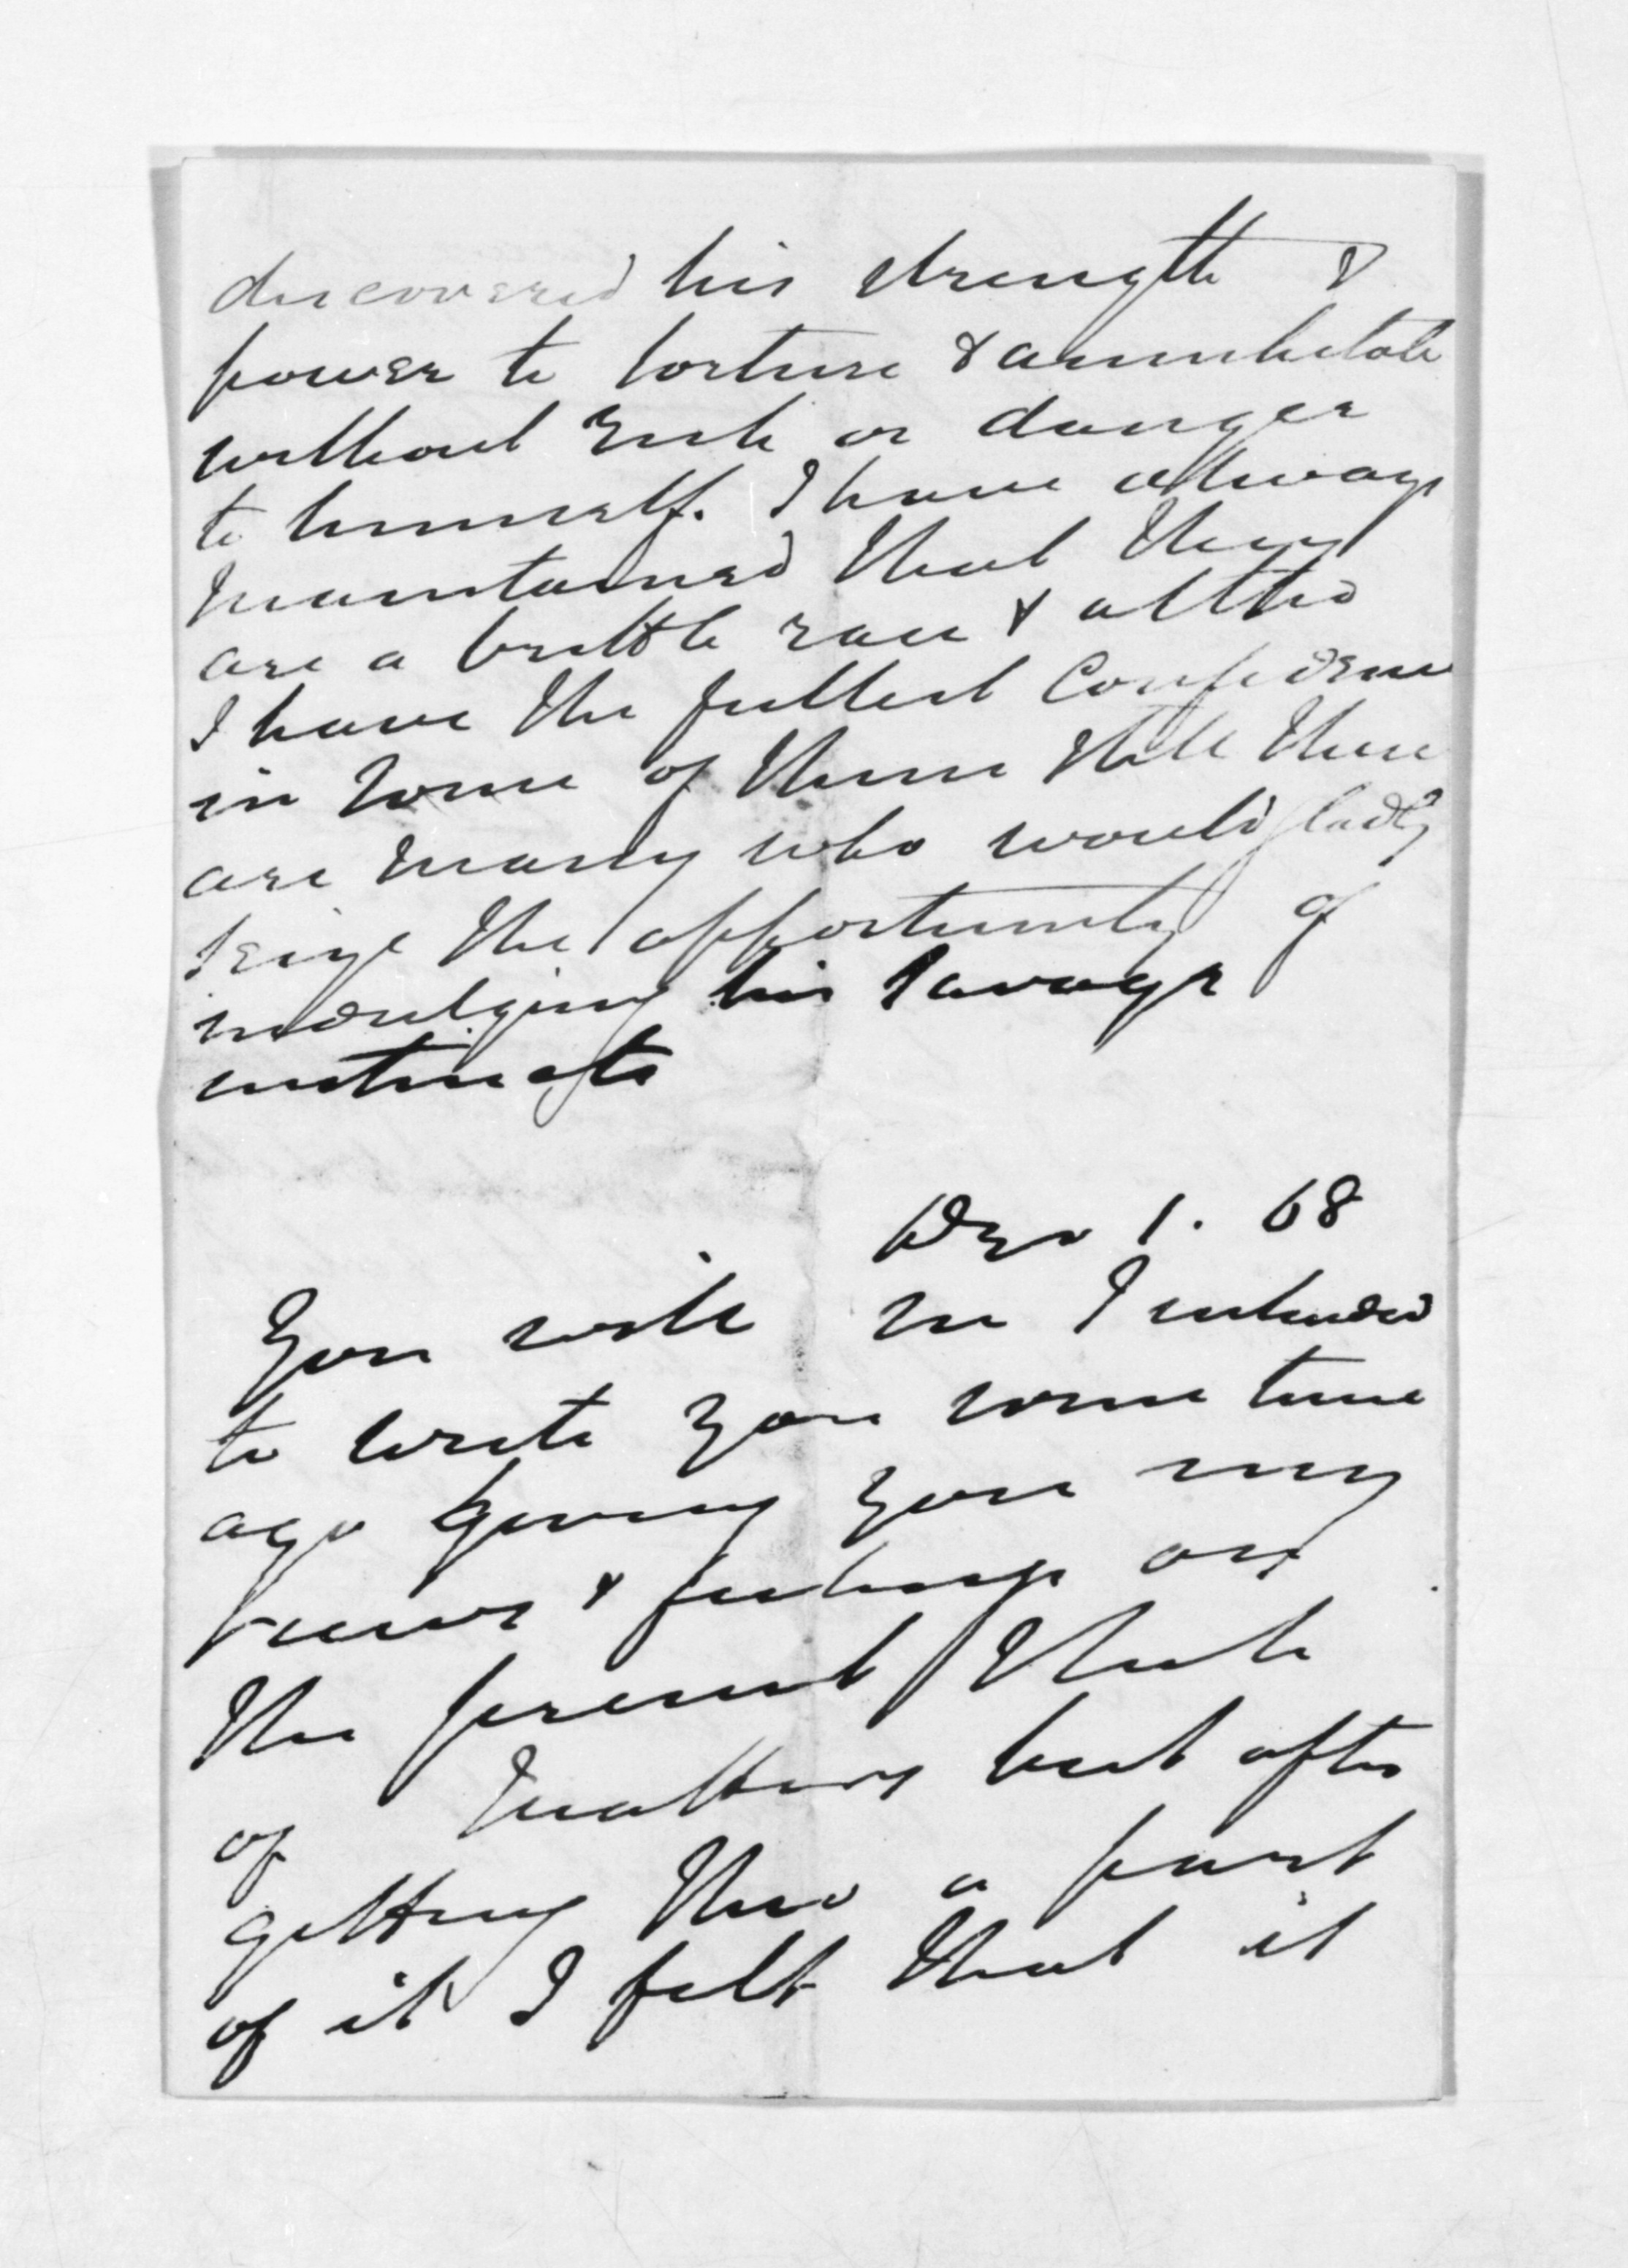 discovered his strength &
power to torture & annihilate
without risk or danger
to himself. I have always
maintained that they
are a brittle race & altho
I have the fullest Confidence
in some of them still there
are many who would gladly
seize the opportunity of
indulging his savage
instincts
Dec 1. 68
You will see I intended
to write you some time
ago giving you my
views & feelings on
the present state
of matters but after
getting thro a part
of it I felt that it